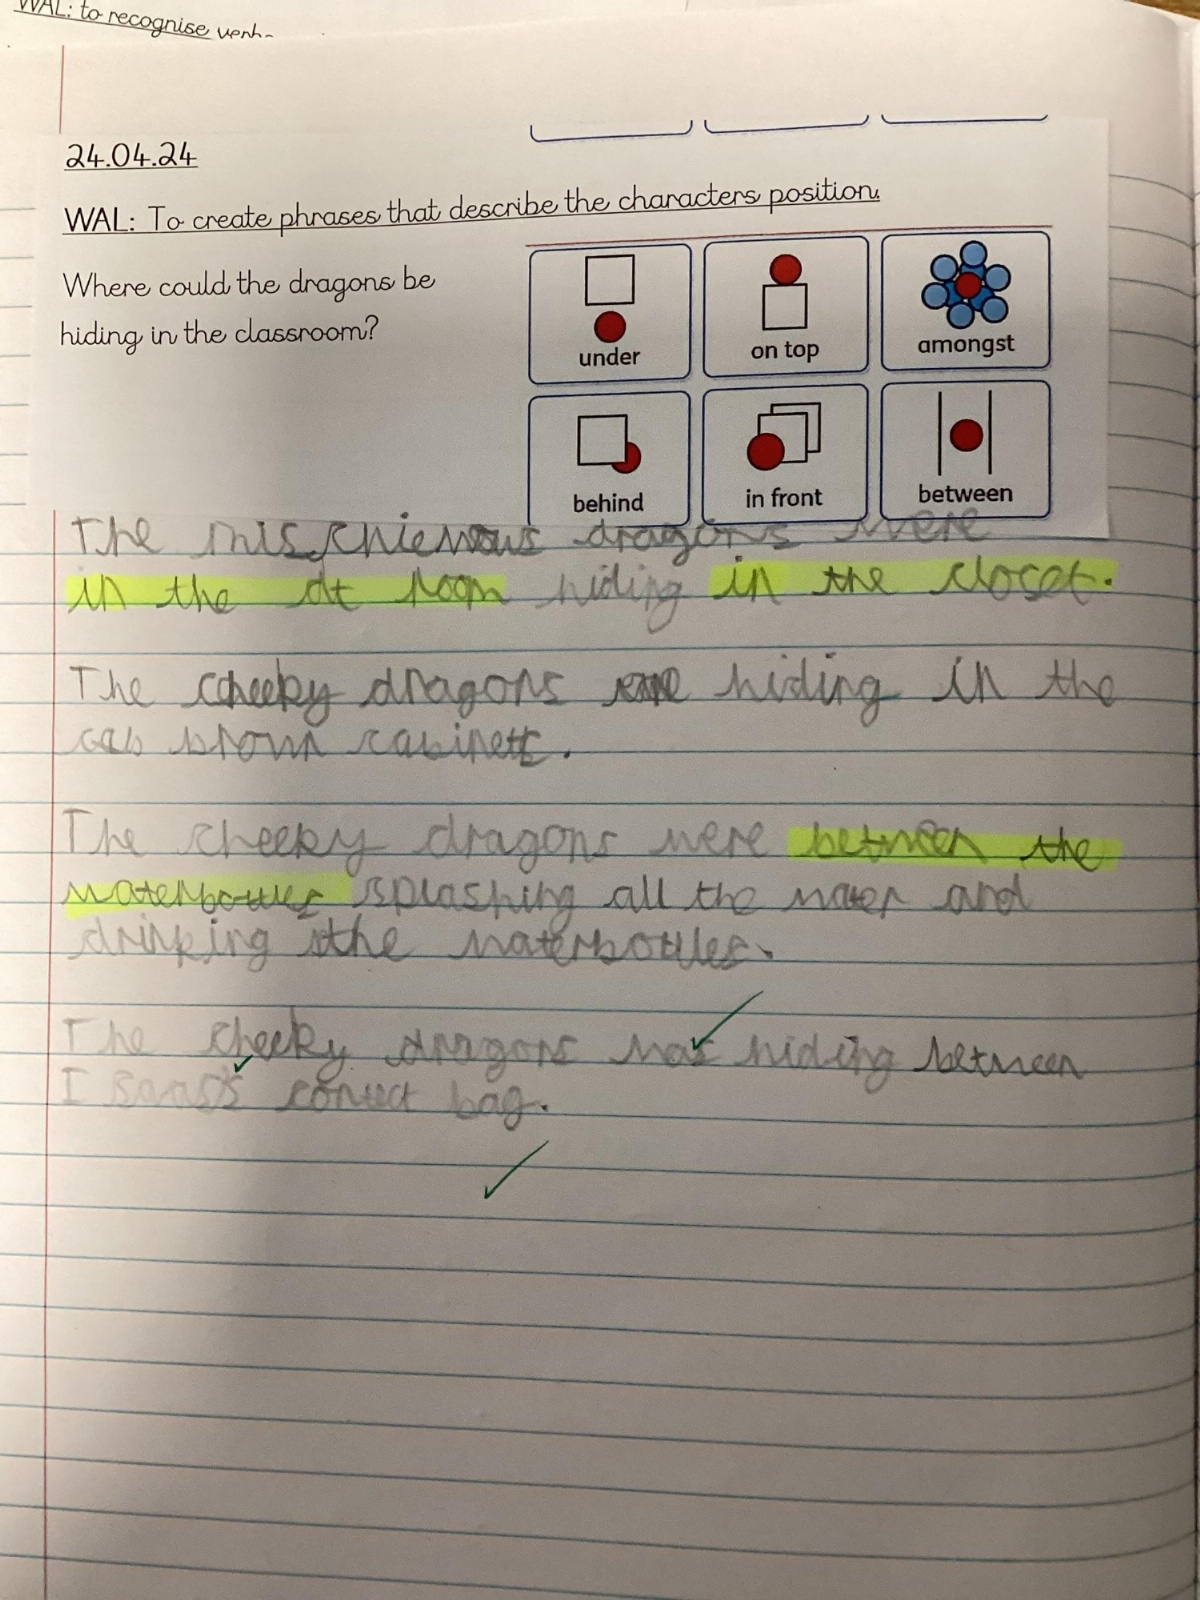 WAL: to recognise verb
24.04.24
WAL: To create phrases that describe the characters position.
Where could the dragons be
hiding in the classroom?
under
on top
amongst
behind
in front
between
The mischievous dragons were
in the dt room hiding in the closet.
The cheeky dragons are hiding in the
cab brown cabinett.
The cheeky dragons were between the
waterbottles splashing all the water and
drinking the waterbottles.
The cheeky dragons was hiding between
bag.